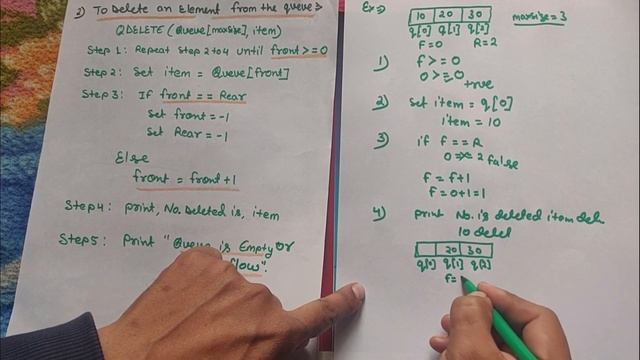 2) To Delete an Element from the queue⇒
QDELETE (Queue[maxsize], item)
Step 1: Repeat Step 2 to 4 until front >= 0
Step 2: Set item = Queue[front]
Step 3: If front == Rear
Set front = -1
Set Rear = -1
Else
front = front + 1
Step 4: print, No. Deleted is, item
Step 5: Print "Queue is Empty or
flow".
Ex⇒
10 20 30
maxsize = 3
q[0] q[1] q[2]
F=0 R=2
1) f >= 0
0 >= 0
true
2) set item = q[0]
item = 10
3) if f == R
0 == 2 false
f = f+1
f = 0+1 = 1
4) print No. is deleted item
10
20 30
q[0] q[1] q[2]
f=